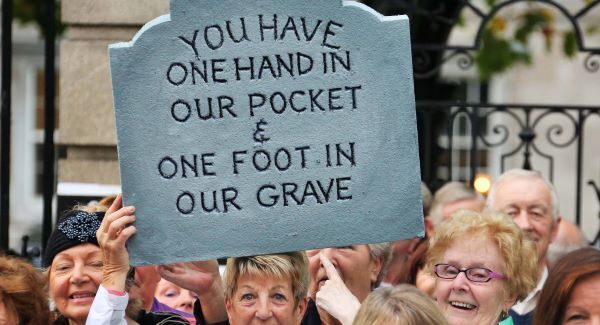 YOU HAVE
ONE HAND IN
OUR POCKET
&
ONE FOOT IN
OUR GRAVE